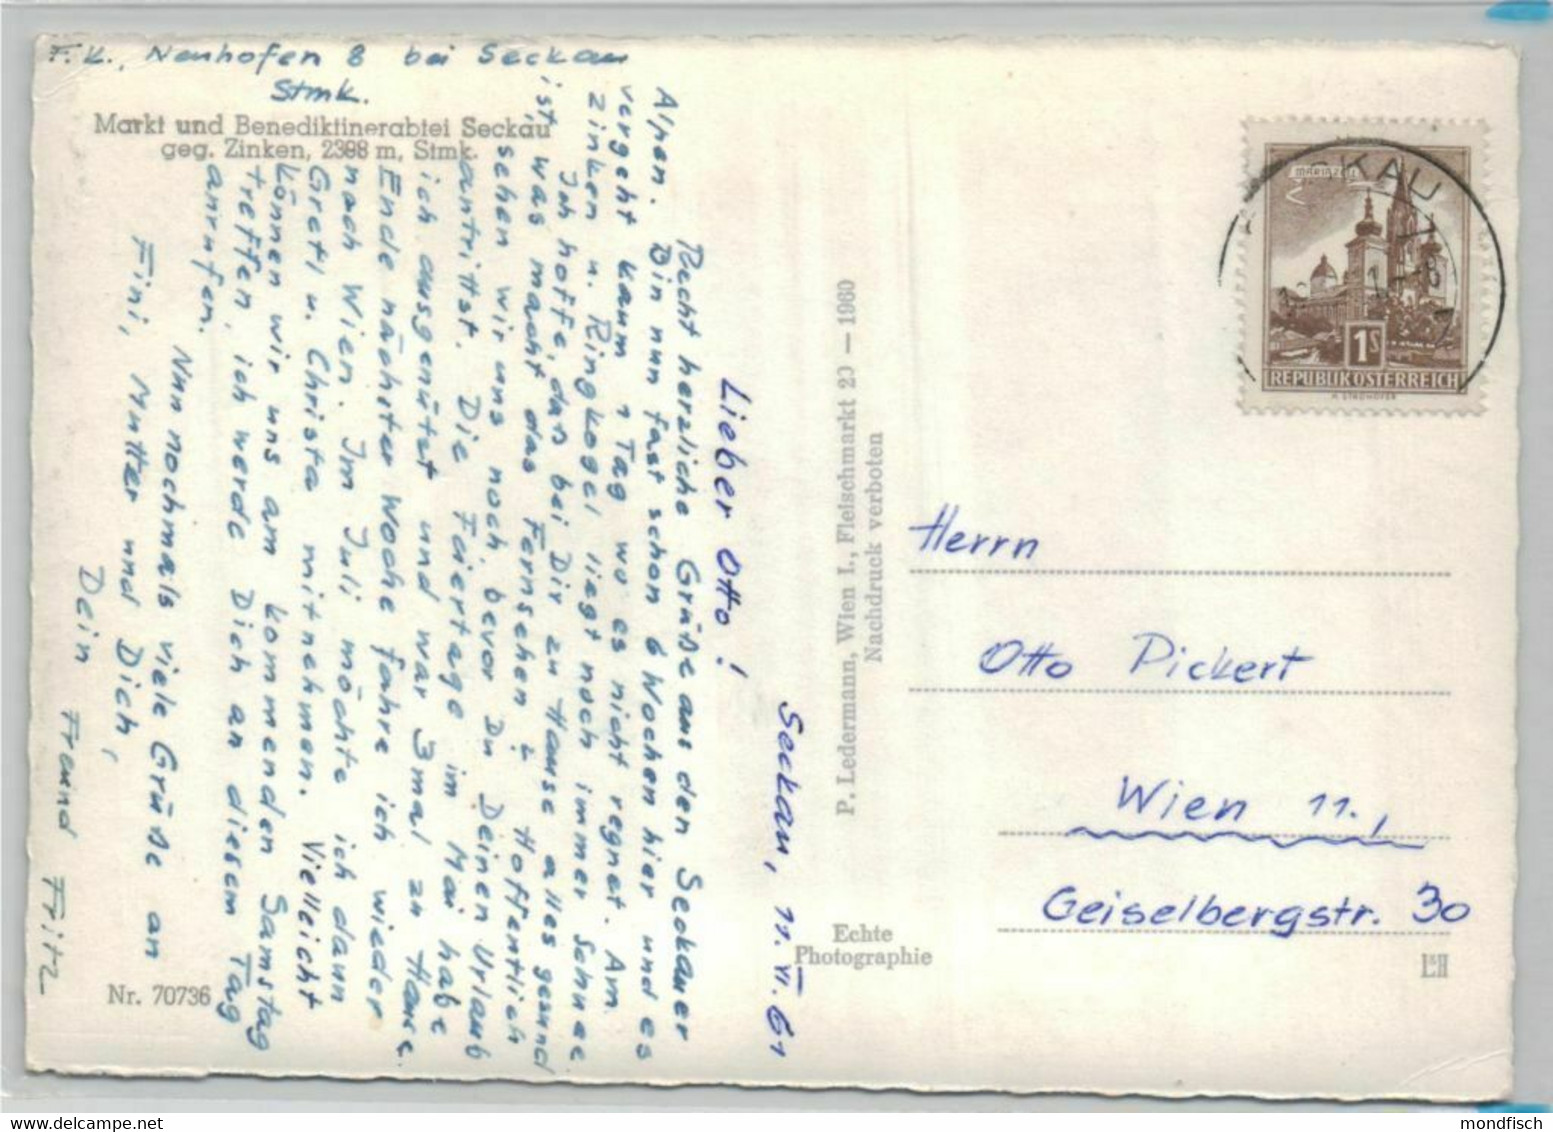 F.K., Neuhofen 8 bei Seckau
Stmk.
Markt und Benediktinerabtei Seckau
geg. Zinken, 2398 m, Stmk.
Seckau, 11.VI.61
Lieber Otto!
Recht herzliche Grüße aus den Seckauer
Alpen. Bin nun fast schon 6 Wochen hier und es
vergeht kaum 1 Tag wo es nicht regnet. Am
Zinken u. Ringkogel liegt noch immer Schnee
Ich hoffe, dan bei Dir zu Hause alles gesund
ist, was macht das Fernsehen? Hoffentlich
sehen wir uns noch, bevor Du Deinen Urlaub
antrittst. Die Feiertage im Mai habe
ich ausgenützt und war 3mal zu Hause.
Ende nächster Woche fahre ich wieder
nach Wien. Im Juli möchte ich dann
Gretl u. Christa mitnehmen. Vielleicht
können wir uns am kommenden Samstag
treffen, ich werde Dich an diesem Tag
anrufen.
Nun nochmals viele Grüße an
Fini, Mutter und Dich,
Dein Freund Fritz
Nr. 70736
P. Ledermann, Wien I., Fleischmarkt 20 — 1960
Nachdruck verboten
Echte
Photographie
MARIAZELL
1S
REPUBLIK ÖSTERREICH
SECKAU
Herrn
Otto Pickert
Wien 11.,
Geiselbergstr. 30
mondfisch